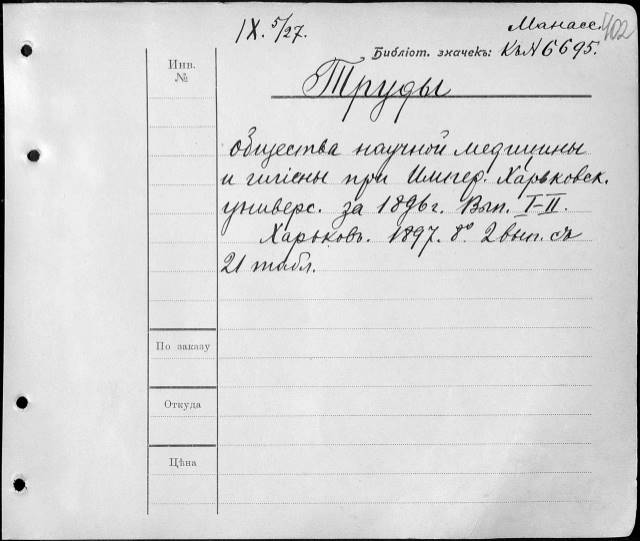 IX. 5/27.
Манасс. 402
Библіот. значекъ: КъN 6695.
Инв. №
Труды
общества научной медицины
и гигіены при Импер. Харьковск.
универс. за 1896 г. Вып. I-II.
Харьковъ. 1897. 8° 2 вып. съ
21 табл.
По заказу
Откуда
Цѣна